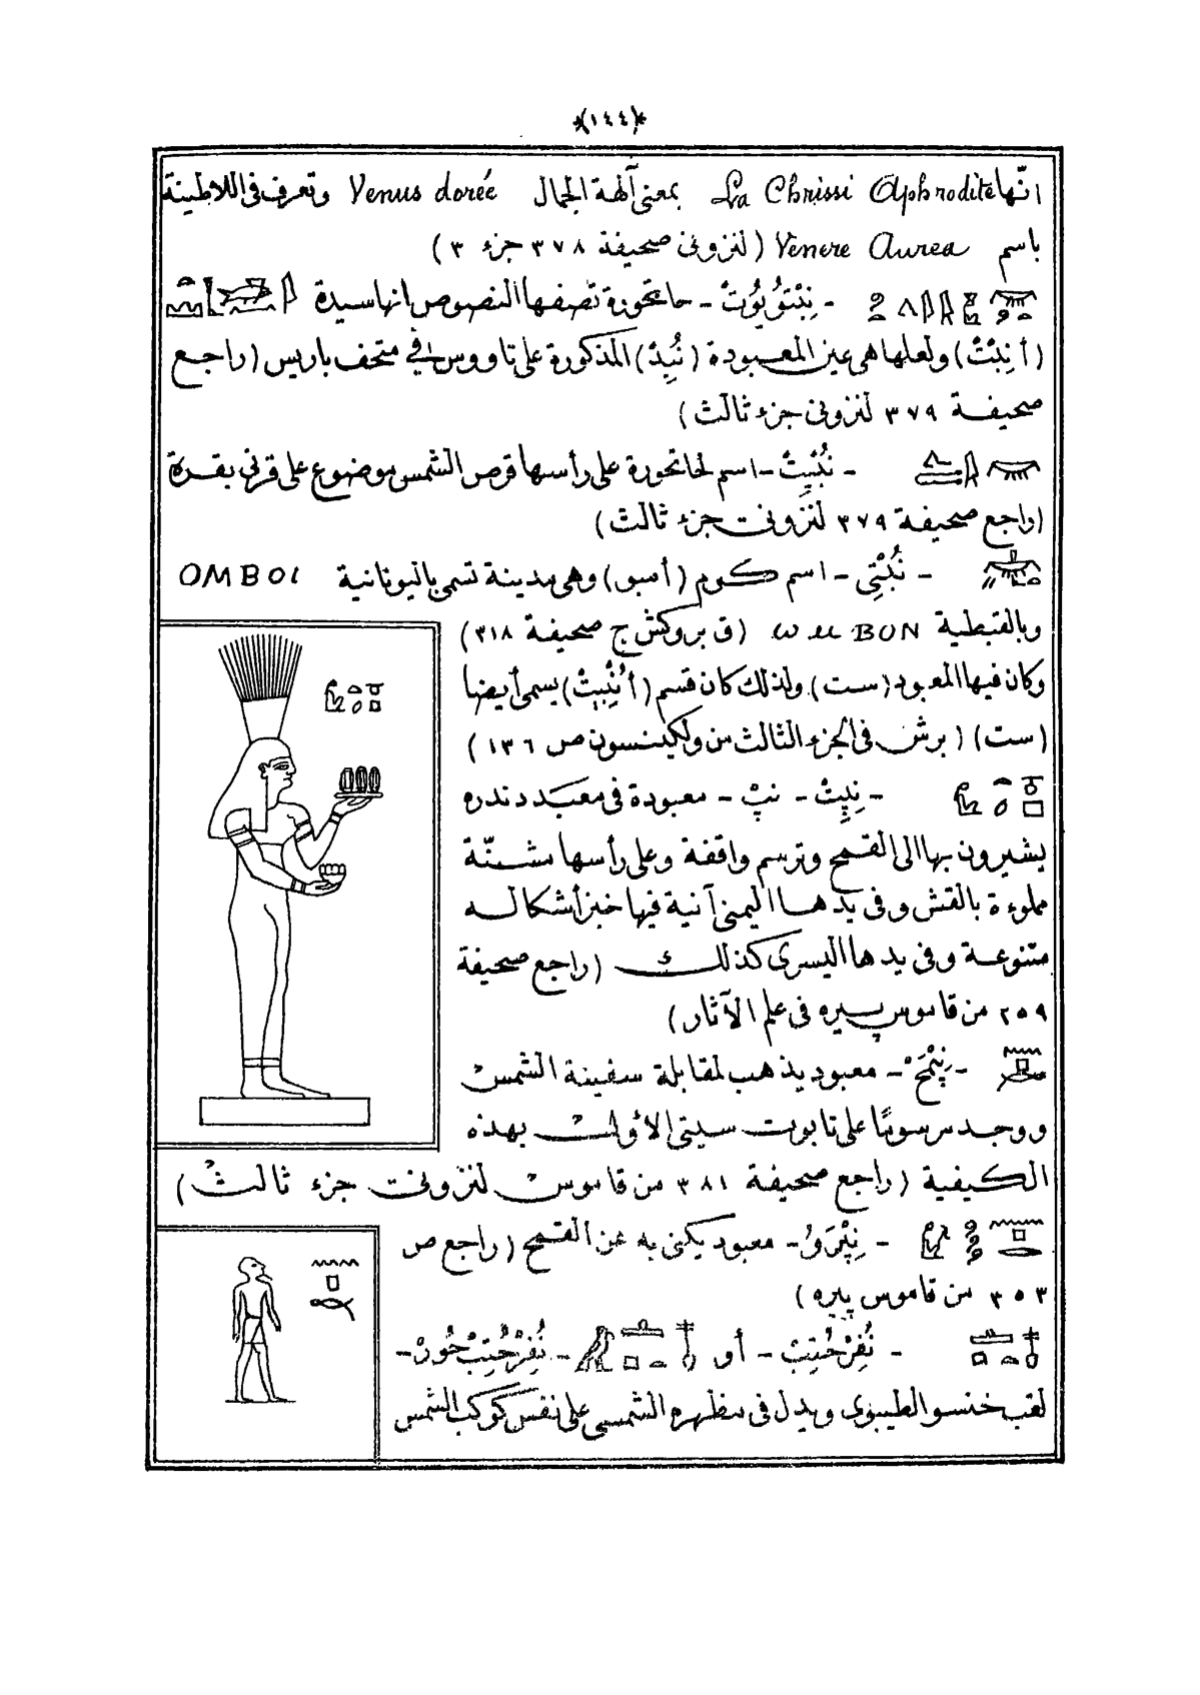 *(١٤٤)*
انّها La Chrissi Aphrodite بمعنى آلهة الجمال Venus dorée وتعرف فى اللاطينة
باسم Venere Aurea (لنزونى صحيفة ٣٧٨ جزء ٣)
- نِبْتُوُيُوُتْ - حاتحورة تصفها النصوص انها سيدة
(أنِبْتْ) ولعلها هى عين المعبودة (نُبِدْ) المذكورة على تاووس فى متحف باريس (راجع
صحيفة ٣٧٩ لنزونى جزء ثالث)
- نُبْيِتْ - اسم لحاتحورة على رأسها قرص الشمس موضوع على قرنى بقرة
(راجع صحيفة ٣٧٩ لنزونى جزء ثالث)
- نُبْتِى - اسم كوم (أمبو) وهى مدينة تسمى باليونانية OMBOI
وبالقبطية ⲱⲙⲃⲟⲛ (ق بروكش ج صحيفة ٣١٨)
وكان فيها المعبود (ست) ولذلك كان قسم (أنُبِيتْ) يسمى أيضا
(ست) (برش فى الجزء الثالث من ولكينسون ص ١٣٦)
- نِپِتْ - نپْ - معبودة فى معبد دندره
يشيرون بها الى القمح وترسم واقفة وعلى رأسها مشنّة
مملوءة بالقش وفى يدها اليمنى آنية فيها خبز أشكاله
متنوعة وفى يدها اليسرى كذلك (راجع صحيفة
٢٥٩ من قاموس پييره فى علم الآثار)
- نِپْمَحْ - معبود يذهب لمقابلة سفينة الشمس
ووجد مرسوما على تابوت سيتى الأول بهذه
الكيفية (راجع صحيفة ٣٨١ من قاموس لنزونى جزء ثالث)
- نِپْرَوُ - معبود يكنى به عن القمح (راجع ص
٣٥٣ من قاموس پييره)
- نُفِرْحُتِبْ - أو - نُفِرْحُتِبْ حُورْ -
لقب خنسو الطيبوى ويدل فى مظهره الشمسى على نفس كوكب الشمس